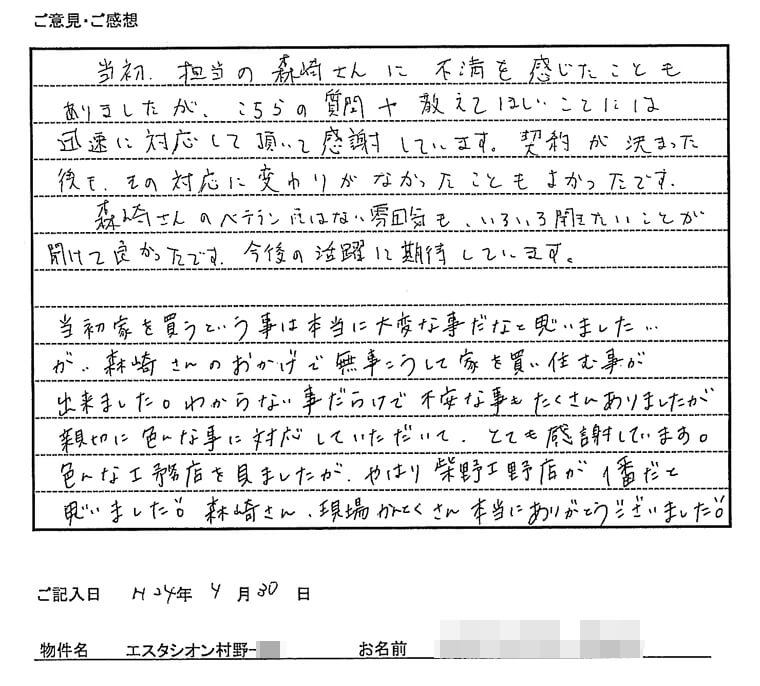 ご意見・ご感想
当初、担当の森崎さんに不満を感じたことも
ありましたが、こちらの質問や教えてほしいことには
迅速に対応して頂いて感謝しています。契約が決まった
後も、その対応に変わりがなかったこともよかったです。
森崎さんのベテランにはない雰囲気も、いろいろ聞きたいことが
聞けて良かったです。今後の活躍に期待しています。
当初家を買うという事は本当に大変な事だなと思いました…
が、森崎さんのおかげで無事こうして家を買い住む事が
出来ました。わからない事だらけで不安な事もたくさんありましたが
親切に色んな事に対応していただいて、とても感謝しています。
色んな工務店を見ましたが、やはり柴野工野店が1番だと
思いました。森崎さん、現場かんとくさん本当にありがとうございました。
ご記入日 H24年 4月30日
物件名 エスタシオン村野- お名前